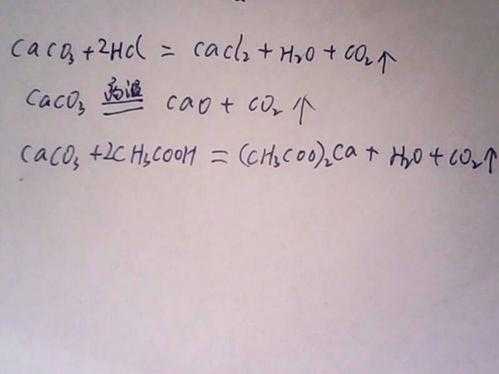 CaCO₃ + 2HCl = CaCl₂ + H₂O + CO₂↑
CaCO₃ 高温 CaO + CO₂↑
CaCO₃ + 2CH₃COOH = (CH₃COO)₂Ca + H₂O + CO₂↑